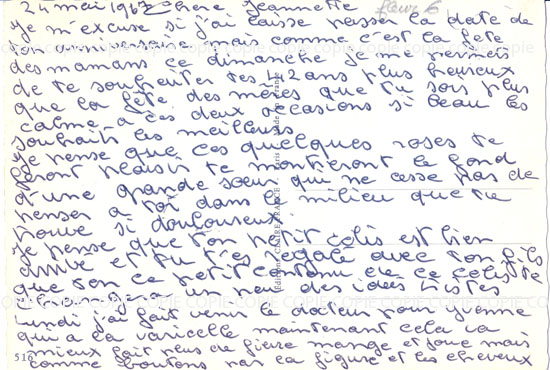 24 mai 1967 Chère Jeannette
fleur 6
Je m'excuse si j'ai laissé passé la date de
ton anniversaire mais comme c'est la fête
des mamans ce dimanche je me permets
de te souhaiter tes 42 ans plus heureux
que la fête des mères que tu sois plus
calme a ces deux occasions si beau les
souhait les meilleurs
Je pense que ces quelques roses te
feront plaisir te montreront le fond
d'une grande sœur qui ne cesse pas de
penser a toi dans le milieu que tu
trouve si douloureux.
Je pense que ton petit colis est bien
arrivé et tu t'es régalé avec ton fils
que ton ce petit contenu de ce colis te
un peu des idées tristes
Lundi j'ai fait venir le docteur pour yvonne
qui a la varicelle maintenant cela va
mieux fait plus de fièvre mange et joue mais
comme boutons par la figure et les cheveux
516
COPIE COPIE COPIE COPIE COPIE COPIE